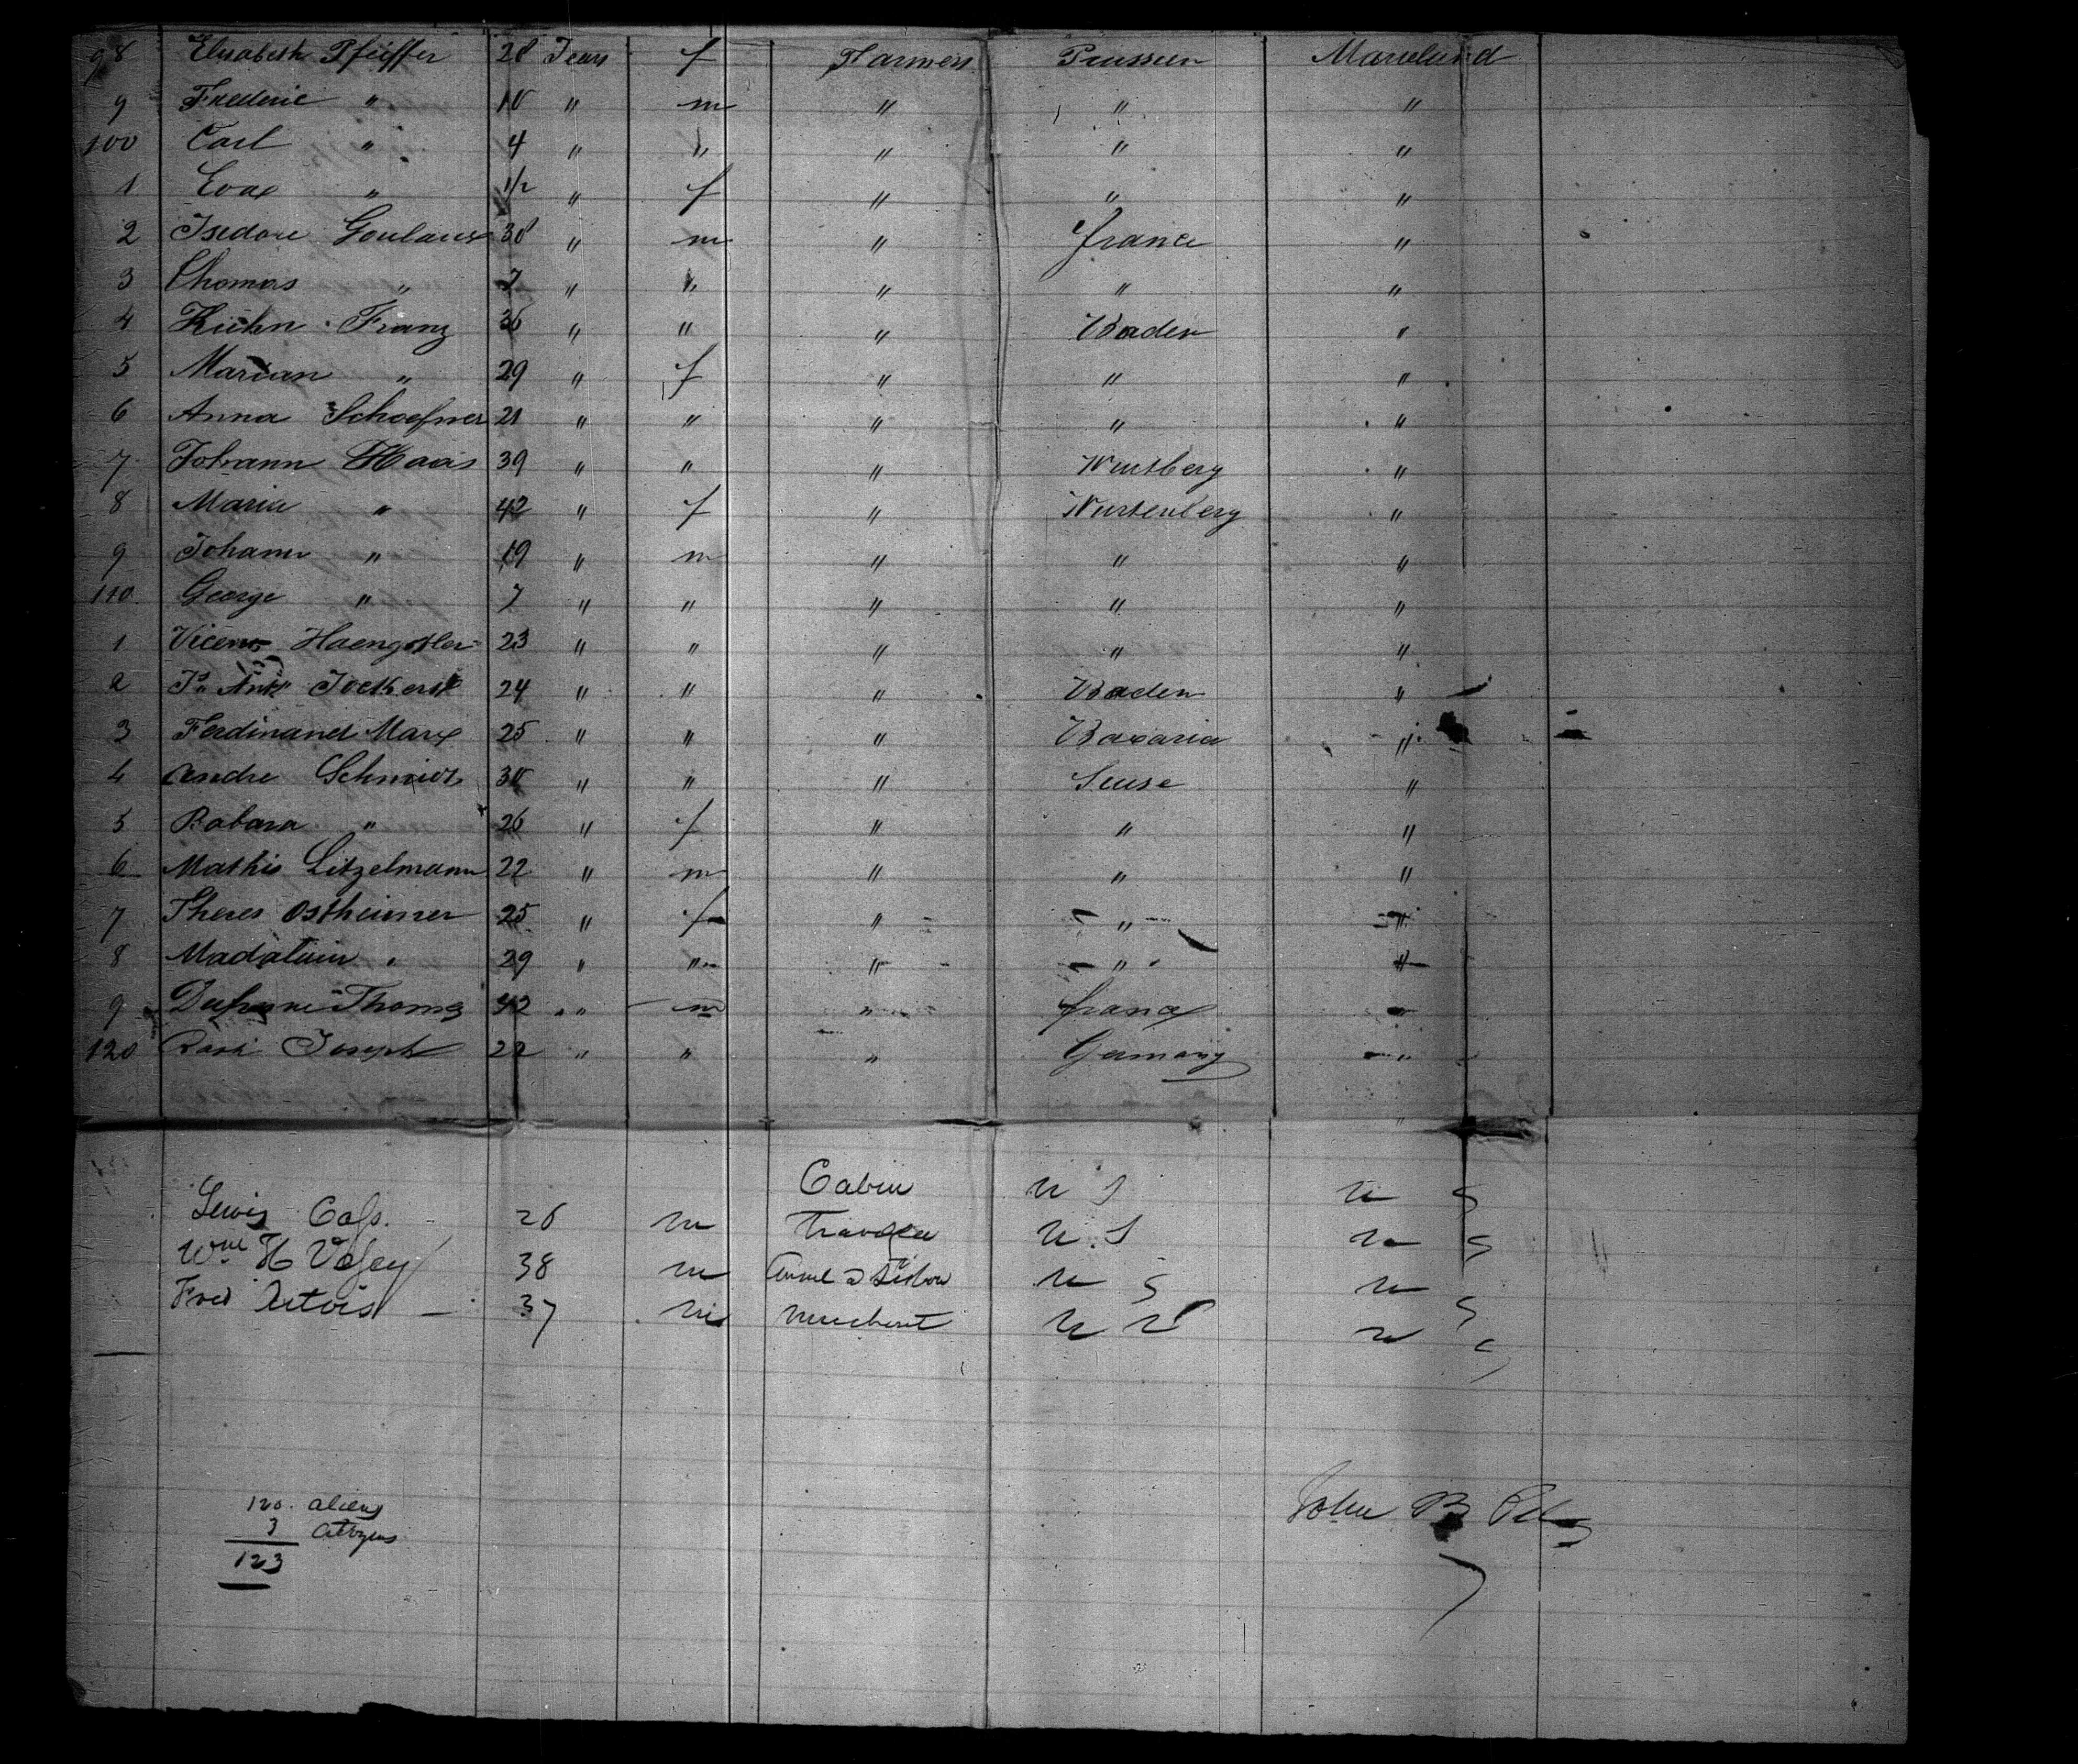 98 Elisabeth Pfeiffer 28 Years f Farmers Prussien Marieland
9 Frederic " 10 " m " " "
100 Carl " 4 " " " " "
1 Evax " 1/2 " f " " "
2 Isedore 38 " m " France "
3 Thomas " 7 " " " " "
4 Kuhn Franz 36 " " " Baden "
5 Marian " 29 " f " " "
6 Anna Schoefner 21 " " " " "
7 Johann Haas 39 " " " Wurtberg "
8 Maria " 42 " f " Wurtenberg "
9 Johann " 19 " m " " "
110 George " 7 " " " " "
1 Haengstler 23 " " " " "
2 24 " " " Baden "
3 Ferdinand Marx 25 " " " Bavaria "
4 Andre Schmidt 30 " " " Seuse "
5 Babara " 26 " f " " "
6 Mathis Litzelmann 22 " m " " "
7 Theres Ostheimer 25 " f " " "
8 " 29 " " " " "
9 Thomas 42 " " m " France "
120 Joseph 22 " " " Germany "
Cabin U S U S
Lewis Cass. 26 m Traveler U.S U S
Wm H Vesey 38 m U S U S
Fred Artois 37 m Merchant U S U S
120. aliens
3 Citizens
123
John B